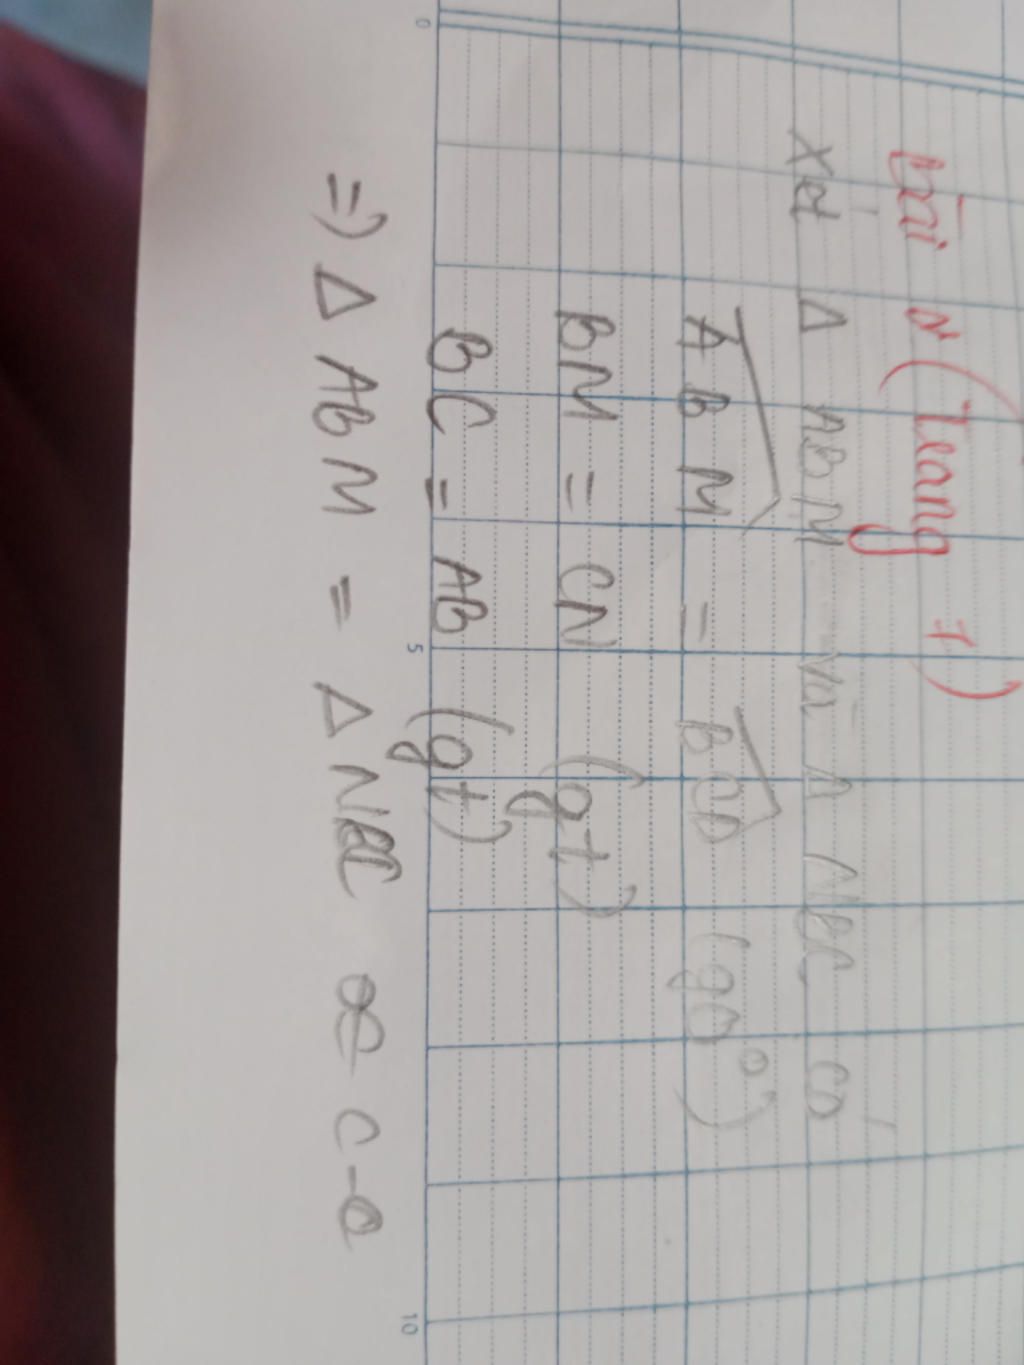 bài 2 (Trang 7)
Xét Δ ABM và Δ NBC có
ABM = BCD (90°)
BM = CN (gt)
BC = AB (gt)
=) Δ ABM = Δ NBC c-c
0
5
10